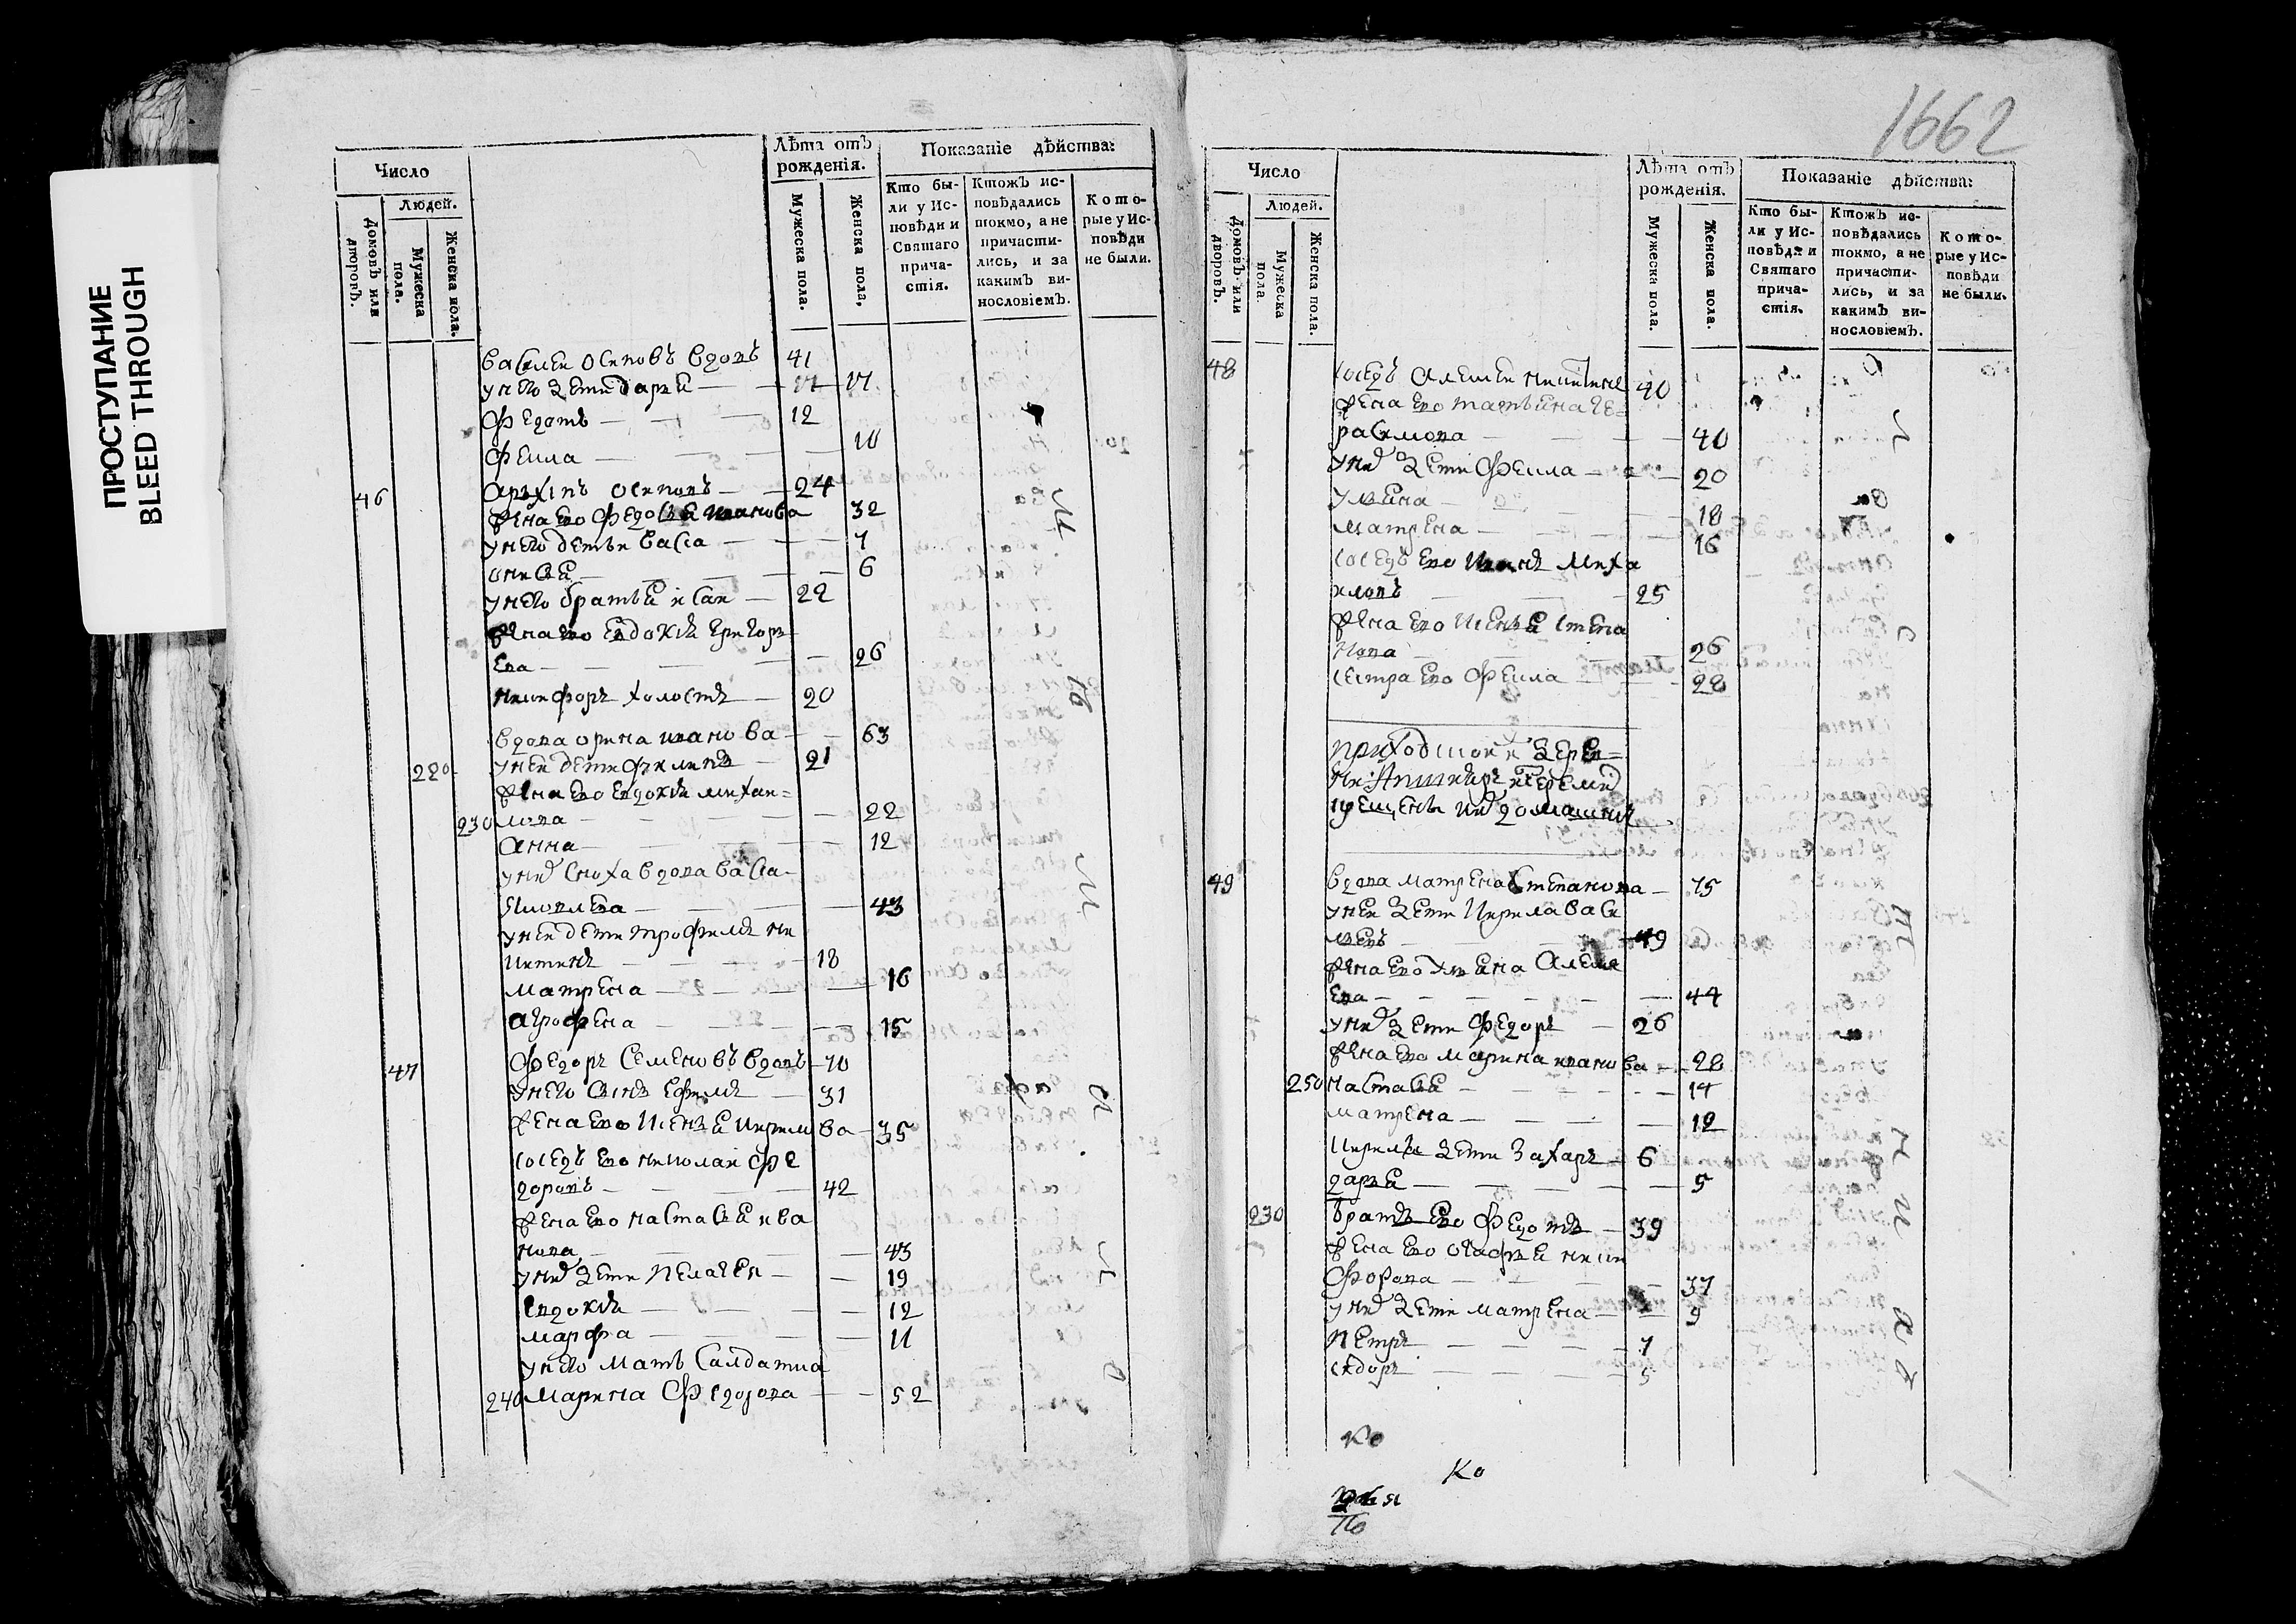 ПРОСТУПАНИЕ
BLEED THROUGH
Число
Лѣта отъ рожденія.
Показаніе дѣйства:
Людей.
Домовъ или дворовъ.
Мужеска пола.
Женска пола.
Мужеска пола.
Женска пола,
Кто бы-
ли у Ис-
повѣди и
Святаго
прича-
стія.
Ктожъ ис-
повѣдались
токмо, а не
причасти-
лись, и за
какимъ ви-
нословіемъ.
Кото-
рые у Ис-
повѣди
не были.
василеи осиповъ вдовъ 41
у него дети дарья 17 17
федотъ 12
фекла 10
46 архипъ осиповъ 24
жена ево федосья иванова 32
у него дети васса 7
6
у него братья исаи 22
жена ево евдокия григорь
ева 26
никифоръ холостъ 20
вдова орина иванова 63
220 у неи дети филипъ 21
жена ево евдокия михаи=
230 лова 22
анна 12
у них сноха вдова васса
яковлева 43
у неи дети трофимъ ни
китинъ 18
матрена 16
агрофена 15
47 федоръ семеновъ вдовъ 70
у него сынъ ефимъ 31
жена ево ксенья кирилова 35
соседъ ево николаи фе
доровъ 42
жена ево настасья ива
нова 43
у них дети пелагея 19
евдокия 12
марфа 11
у него мать салдатка
240 марина федорова 52
1662
Число
Лѣта отъ рожденія.
Показаніе дѣйства:
Людей.
Домовъ или дворовъ.
Мужеска пола.
Женска пола.
Мужеска пола.
Женска пола.
Кто бы-
ли у Ис-
повѣди и
Святаго
прича-
стія.
Ктожъ ис-
повѣдались
токмо, а не
причасти-
лись, и за
какимъ ви-
нословіемъ.
Кото-
рые у Ис-
повѣди
не были.
48 соседъ алексеи никитинъ 40
жена ево татьяна ге=
расимова 40
у них дети фекла 20
ульяна 18
матрена 16
соседъ ево иванъ миха
иловъ 25
жена ево ксенья степа
нова 26
сестра ево фекла 28
приходскои дерев=
ни
крещены их домашния
49 вдова матрена степанова 75
у неи дети кирила васи
льевъ 49
жена ево ульяна алексе
ева 44
у них дети федоръ 26
жена ево марина иванова 28
250 настасья 14
матрена 12
кирилы дети захаръ 6
дарья 5
230 братъ ево федотъ 39
жена ево агафья ники
форова 37
у них дети матрена 9
петръ 7
сидоръ 5
Ко
Ко